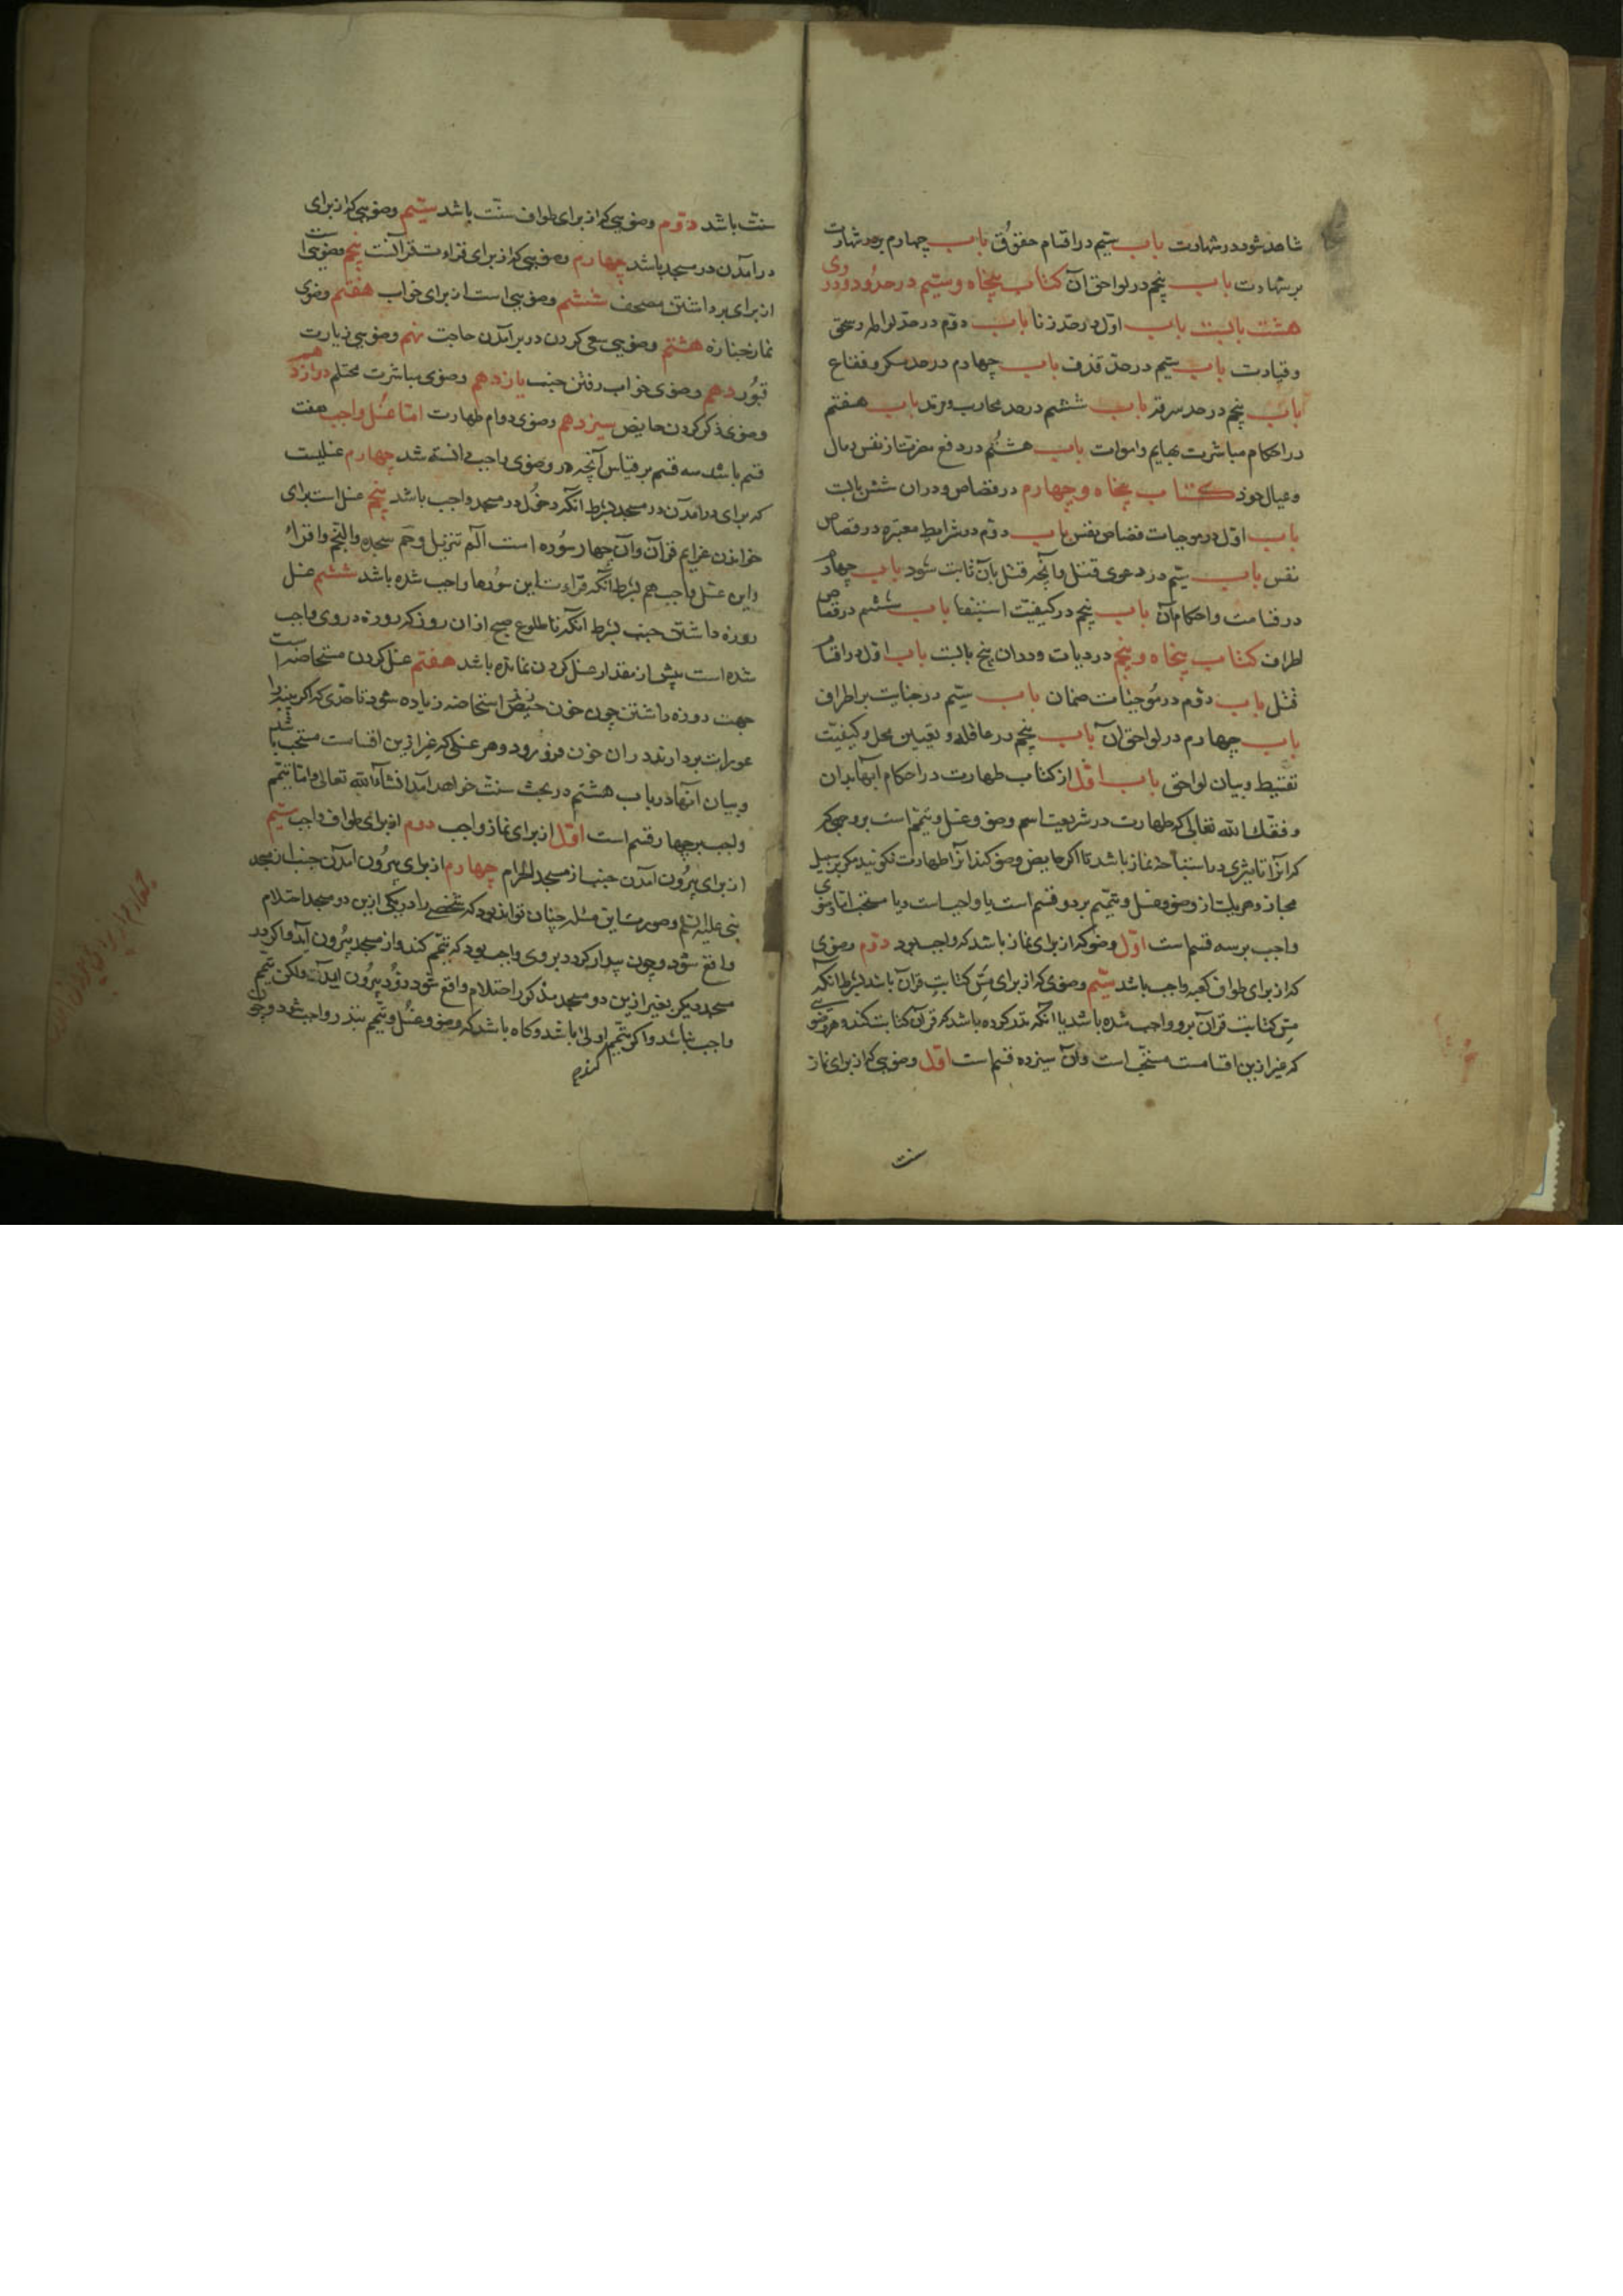 شاهد شود در شهادت باب سیّم در اقسام حقوُق باب چهارم در شهادت
بر شهادت باب پنجم در لواحق آن کتاب پنجاه و سیّم در حدُود و در وی
هشت بابست باب اوّل در حدّ زنا باب دوّم در حدّ لواطه و سحق
و قیادت باب سیّم در حدّ قذف باب چهارم در حدّ مسکر و فقاع
باب پنجم در حد سرقه باب ششم در حد محارب و مرتد باب هفتم
در احکام مباشرت بهایم و اموات باب هشتُم در دفع مضرت از نفس و مال
و عیال خود کتاب پنجاه و چهارم در قصاص و در ان شش بابست
باب اوّل در موجبات قصاص نفس باب دوّم در شرایط معتبره در قصاص
نفس باب سیّم در دعوی قتل و آنچه قتل بآن ثابت شود باب چهارم
در قسامت و احکام آن باب پنجم در کیفیّت استیفا باب ششم در قصاص
اطراف کتاب پنجاه و پنجم در دیات و در ان پنج بابست باب اوّل در اقسام
قتل باب دوّم در مُوجبات ضمان باب سیّم در جنایت بر اطراف
باب چهارم در لواحق آن باب پنجم در عاقله و تعیین محل و کیفیّت
تقسیط و بیان لواحق باب اوّل از کتاب طهارت در احکام آبها بدان
وفقک الله تعالی که طهارت در شریعت اسم وضو و غسل و تیمّم است بر وجهی که
که آنرا تاثیری در استباحهٔ نماز باشد تا اگر حایض وضو کند آنرا طهارت نگویند مگر بر سبیل
مجاز و هر یک از وضو و غسل و تیمّم بر دو قسم است یا واجب است و یا مستحب امّا وضوی
واجب بر سه قسم است اوّل وضو که از برای نماز باشد که واجب بود دوّم وضوی
که از برای طواف کعبه واجب باشد سیّم وضوی که از برای مسّ کتابت قرآن باشد بشرط انکه
مسّ کتابت قرآن برو واجب شده باشد یا انکه نذر کرده باشد که قرآن کتابت کند و هر وضویی
که غیر ازین اقسامست مستحّب است و آن سیزده قسم است اوّل وضویی که از برای نماز
سنت
سنّت باشد دوّم وضویی که از برای طواف سنّت باشد سیّم وضویی که از برای
درآمدن در مسجد باشد چهارم وضویی که از برای قراءت قرآنست پنجم وضوییست
از برای برداشتن مصحف ششم وضویی است از برای خواب هفتم وضوی
نماز جنازه هشتم وضویی سعی کردن در برآمدن حاجت نهم وضویی زیارت
قبُور دهم وضوی خواب رفتن جنب یازدهم وضوی مباشرت محتلم دوازدهم
وضوی ذکر کردن حایض سیزدهم وضوی دوام طهارت امّا غسُل واجب هفت
قسم باشد سه قسم بر قیاس آنچه در وضوی واجب دانسته شد چهارم غسلیست
که برای درآمدن در مسجد بشرط آنکه دخوُل در مسجد واجب باشد پنجم غسل است برای
خواندن عزایم قرآن و آن چهار سوُره است الٓم تنزیل و حٓم سجده و النجم و اقراء
و این غسل واجب هم بشرط آنکه قراءت این سوُرها واجب شده باشد ششم غسل
روزه داشتن جنب بشرط آنکه تا طلوع صبح از ان روز که روزه در وی واجب
شده است بیش از مقدار غسل کردن نمانده باشد هفتم غسل کردن مستحاضه است
جهت روزه داشتن چون خون استحاضه زیاده شود تا حدّی که اگر پنبه را
عورات بردارند در ان خون فروُ رود و هر غسلی که غیر ازین اقسامست مستحب باشد
و بیان آنها در باب هشتم در بحث سنّت خواهد آمد انشاءالله تعالی و امّا تیمّم
واجب بر چهار قسم است اوّل از برای نماز واجب دوم از برای طواف واجب سیّم
از برای بیرُون آمدن جنب از مسجد الحرام چهارم از برای بیرُون آمدن جنب از مسجد
نبی علیه السّلم و صورت این مسٔله چنان تواند بود که شخصی را در یکی ازین دو مسجد احتلام
واقع شود و چون بیدار گردد بر وی واجب بود که تیمّم کند و از مسجد بیرُون آید و اگر در
مسجد دیگر بغیر ازین دو مسجد مذکور احتلام واقع شود زوُد بیرُون آید و لکن تیمّم
واجب نباشد و اگر تیمّم اولی باشد و گاه باشد که وضو و غسُل و تیمّم بنذر واجب شود و چون